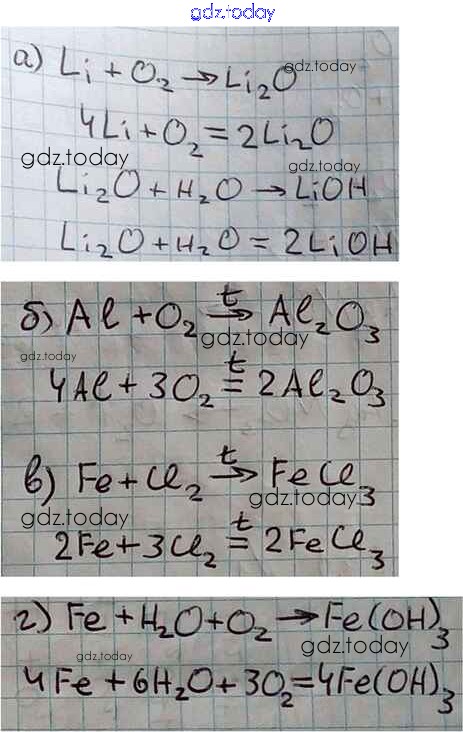 gdz.today
а) Li + O₂ → Li₂O
gdz.today
4Li + O₂ = 2Li₂O
gdz.today
gdz.today
Li₂O + H₂O → LiOH
Li₂O + H₂O = 2LiOH
б) Al + O₂ t→ Al₂O₃
gdz.today
gdz.today
4Al + 3O₂ t= 2Al₂O₃
в) Fe + Cl₂ t→ FeCl₃
gdz.today
gdz.today
2Fe + 3Cl₂ t= 2FeCl₃
г) Fe + H₂O + O₂ → Fe(OH)₃
gdz.today
gdz.today
4Fe + 6H₂O + 3O₂ = 4Fe(OH)₃